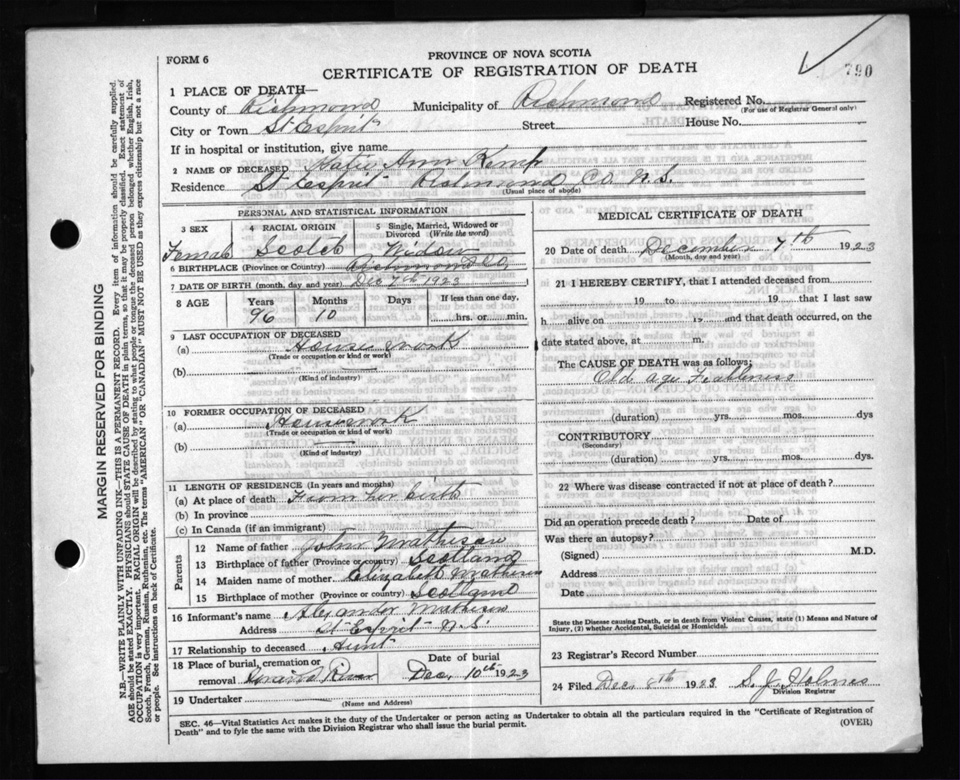 790
FORM 6
PROVINCE OF NOVA SCOTIA
CERTIFICATE OF REGISTRATION OF DEATH
1 PLACE OF DEATH—
County of Richmond Municipality of Richmond Registered No.
(For use of Registrar General only)
City or Town St Esprit Street House No.
If in hospital or institution, give name
2 NAME OF DECEASED Ann Kemp
Residence St Esprit Richmond Co. N.S.
(Usual place of abode)
PERSONAL AND STATISTICAL INFORMATION
3 SEX
Female
4 RACIAL ORIGIN
Scotch
5 Single, Married, Widowed or Divorced (Write the word)
Widow
6 BIRTHPLACE (Province or Country) Richmond Co.
7 DATE OF BIRTH (month, day and year) Dec 7th 1923
8 AGE Years Months Days If less than one day,
96 10 hrs. or min.
9 LAST OCCUPATION OF DECEASED
(a) House work
(Trade or occupation or kind of work)
(b)
(Kind of industry)
10 FORMER OCCUPATION OF DECEASED
(a) Housework
(Trade or occupation or kind of work)
(b)
(Kind of industry)
11 LENGTH OF RESIDENCE (In years and months)
(a) At place of death From her birth
(b) In province
(c) In Canada (if an immigrant)
Parents
12 Name of father John Matheson
13 Birthplace of father (Province or country) Scotland
14 Maiden name of mother Elizabeth Matheson
15 Birthplace of mother (Province or country) Scotland
16 Informant's name Alexander Matheson
Address St Esprit N.S.
17 Relationship to deceased Aunt
18 Place of burial, cremation or removal Grand River
Date of burial
Dec. 10th 1923
19 Undertaker
(Name and Address)
MEDICAL CERTIFICATE OF DEATH
20 Date of death December 7th 1923
(Month, day and year)
21 I HEREBY CERTIFY, that I attended deceased from
19 to 19 that I last saw
h alive on 19 and that death occurred, on
date stated above, at m.
The CAUSE OF DEATH was as follows:
Old age Feebleness
(duration) yrs. mos. dys
CONTRIBUTORY
(Secondary)
(duration) yrs. mos. dys.
22 Where was disease contracted if not at place of death?
Did an operation precede death? Date of
Was there an autopsy?
(Signed) M.D.
Address
Date
State the Disease causing Death, or in death from Violent Causes, state (1) Means and Nature of Injury, (2) whether Accidental, Suicidal or Homicidal.
23 Registrar's Record Number
24 Filed Dec. 8th 1923 S. J. Holmes
Division Registrar
SEC. 46—Vital Statistics Act makes it the duty of the Undertaker or person acting as Undertaker to obtain all the particulars required in the "Certificate of Registration of
Death" and to fyle the same with the Division Registrar who shall issue the burial permit.
(OVER)
MARGIN RESERVED FOR BINDING
N.B.—WRITE PLAINLY WITH UNFADING INK—THIS IS A PERMANENT RECORD. Every item of information should be carefully supplied.
AGE should be stated EXACTLY. PHYSICIANS should STATE CAUSE OF DEATH in plain terms, so that it may be properly classified. Exact statement of
OCCUPATION is very important. RACIAL ORIGIN will be described by stating to what people or tongue the deceased person belonged whether English, Irish,
Scotch, French, German, Russian, Ruthenian, etc. The terms "AMERICAN" OR "CANADIAN" MUST NOT BE USED as they express citizenship but not a race
or people. See instructions on back of Certificate.